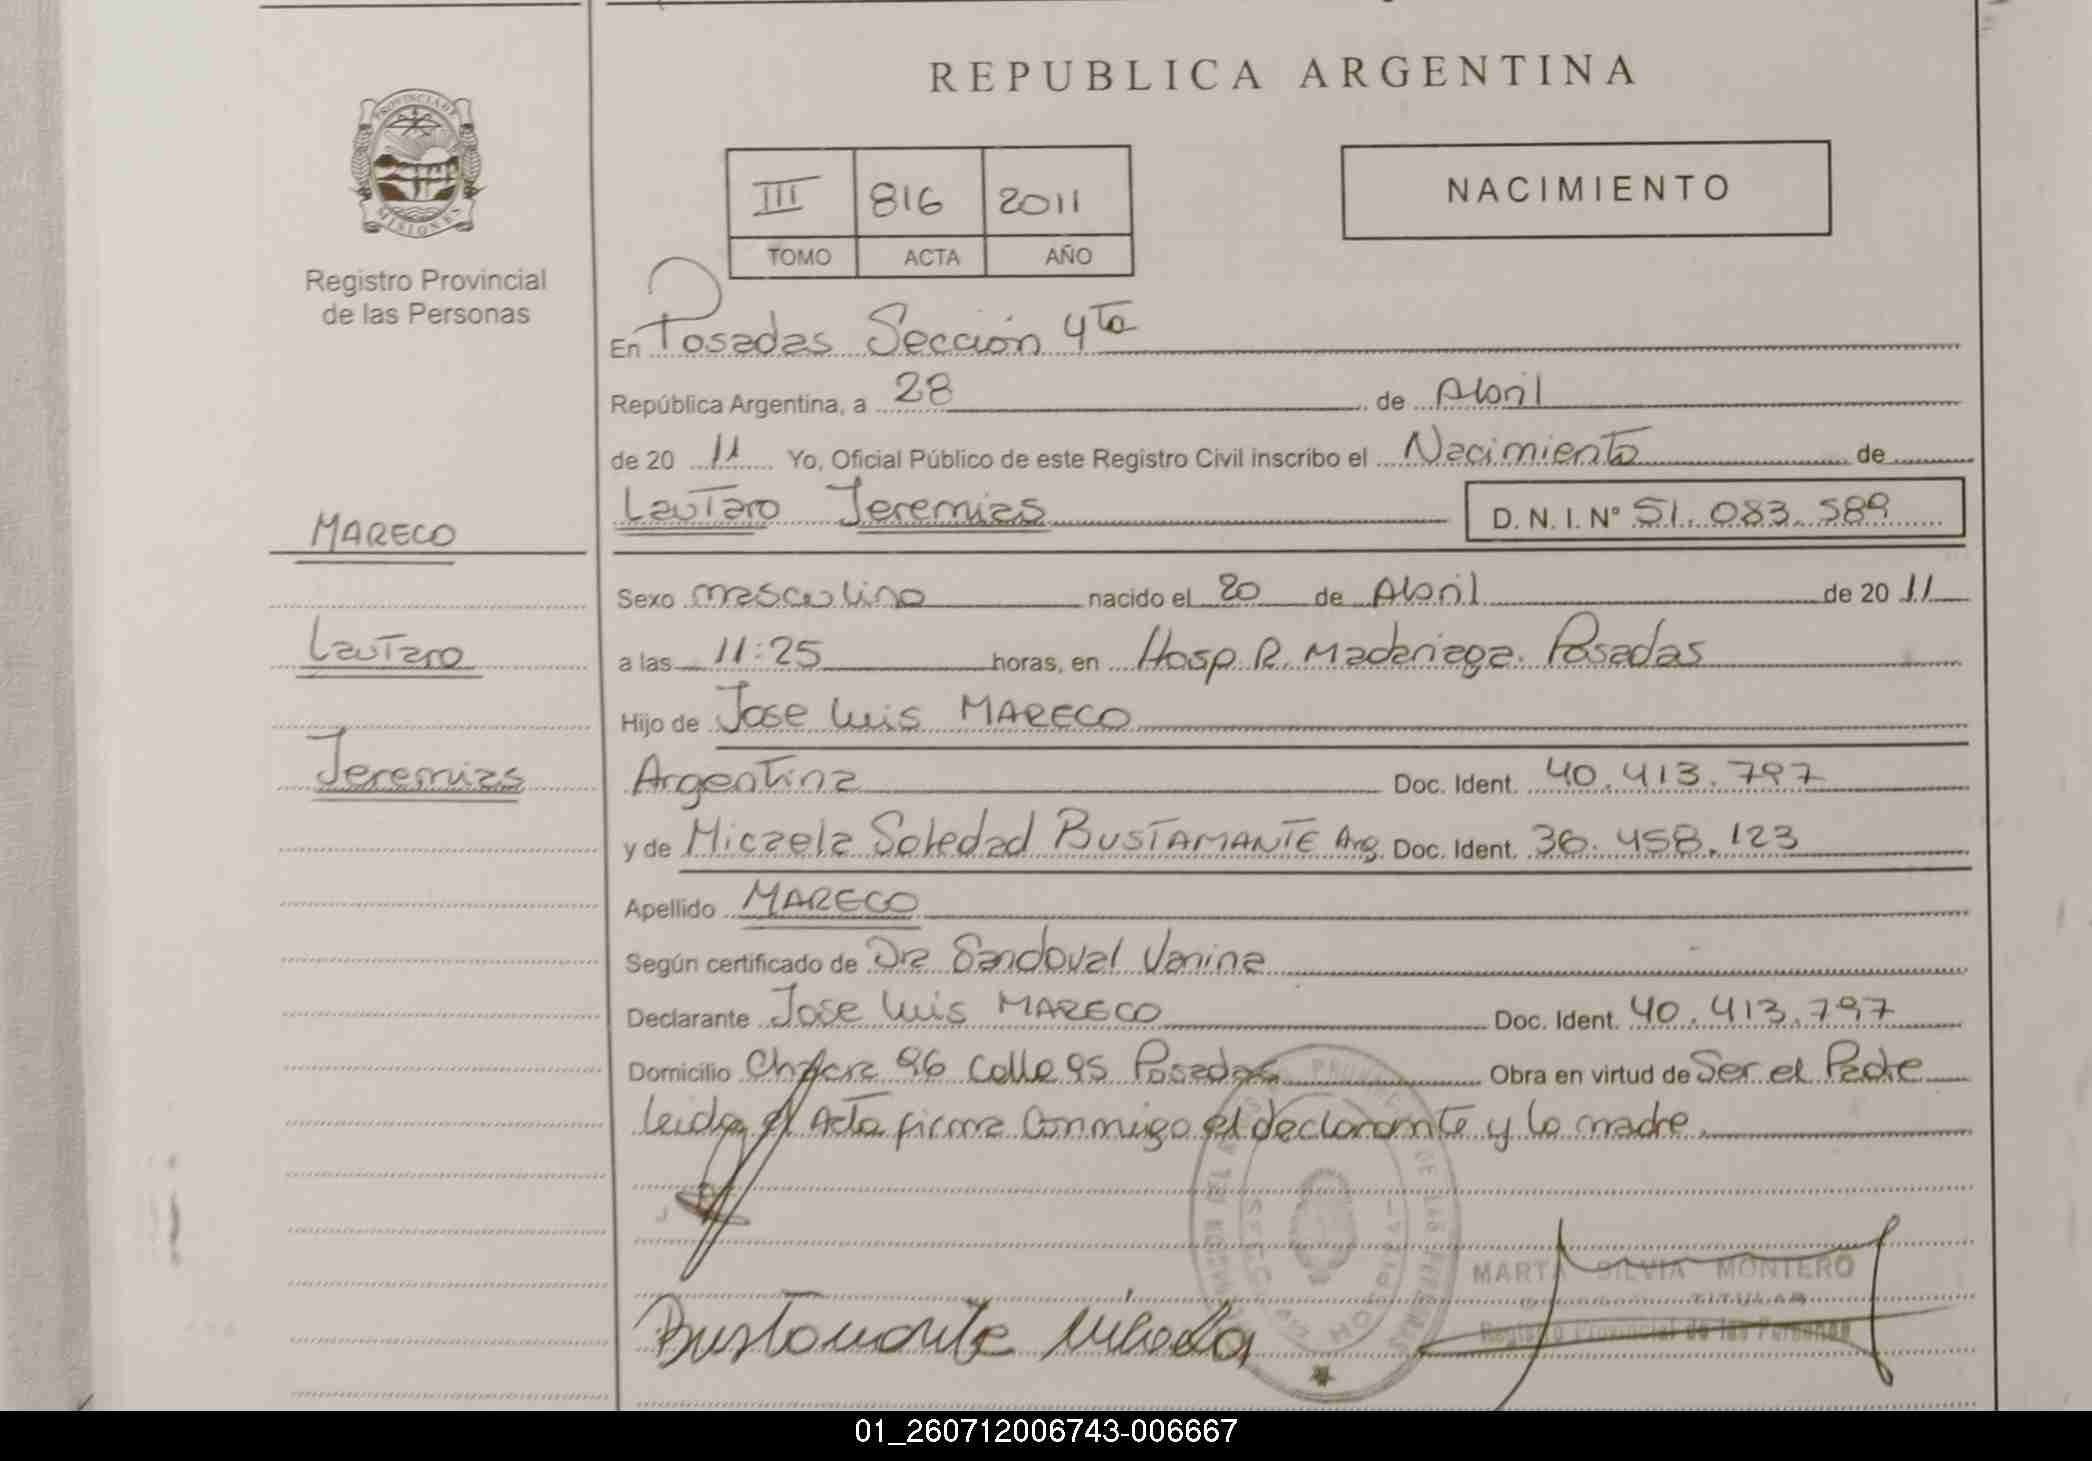 REPUBLICA ARGENTINA
PROVINCIA DE MISIONES
Registro Provincial
de las Personas
III 816 2011
TOMO ACTA AÑO
NACIMIENTO
En Posadas Sección 4ta
República Argentina, a 28 de Abril
de 20 11 Yo, Oficial Público de este Registro Civil inscribo el Nacimiento de
Lautaro Jeremias D. N. I. Nº 51.083.589
MARECO
Lautaro
Jeremias
Sexo masculino nacido el 20 de Abril de 20 11
a las 11:25 horas, en Hosp. R. Madariaga. Posadas
Hijo de Jose Luis MARECO
Argentina Doc. Ident. 40.413.797
y de Micaela Soledad BUSTAMANTE Arg. Doc. Ident. 36.458.123
Apellido MARECO
Según certificado de Dra Sandoval Vanina
Declarante Jose Luis MARECO Doc. Ident. 40.413.797
Domicilio Chacra 96 Calle 95 Posadas Obra en virtud de Ser el Padre
Leida el Acta firma Conmigo el declarante y la madre.
MARTA SILVIA MONTERO
TITULAR
Registro Provincial de las Personas
Bustamante Micaela
01_260712006743-006667